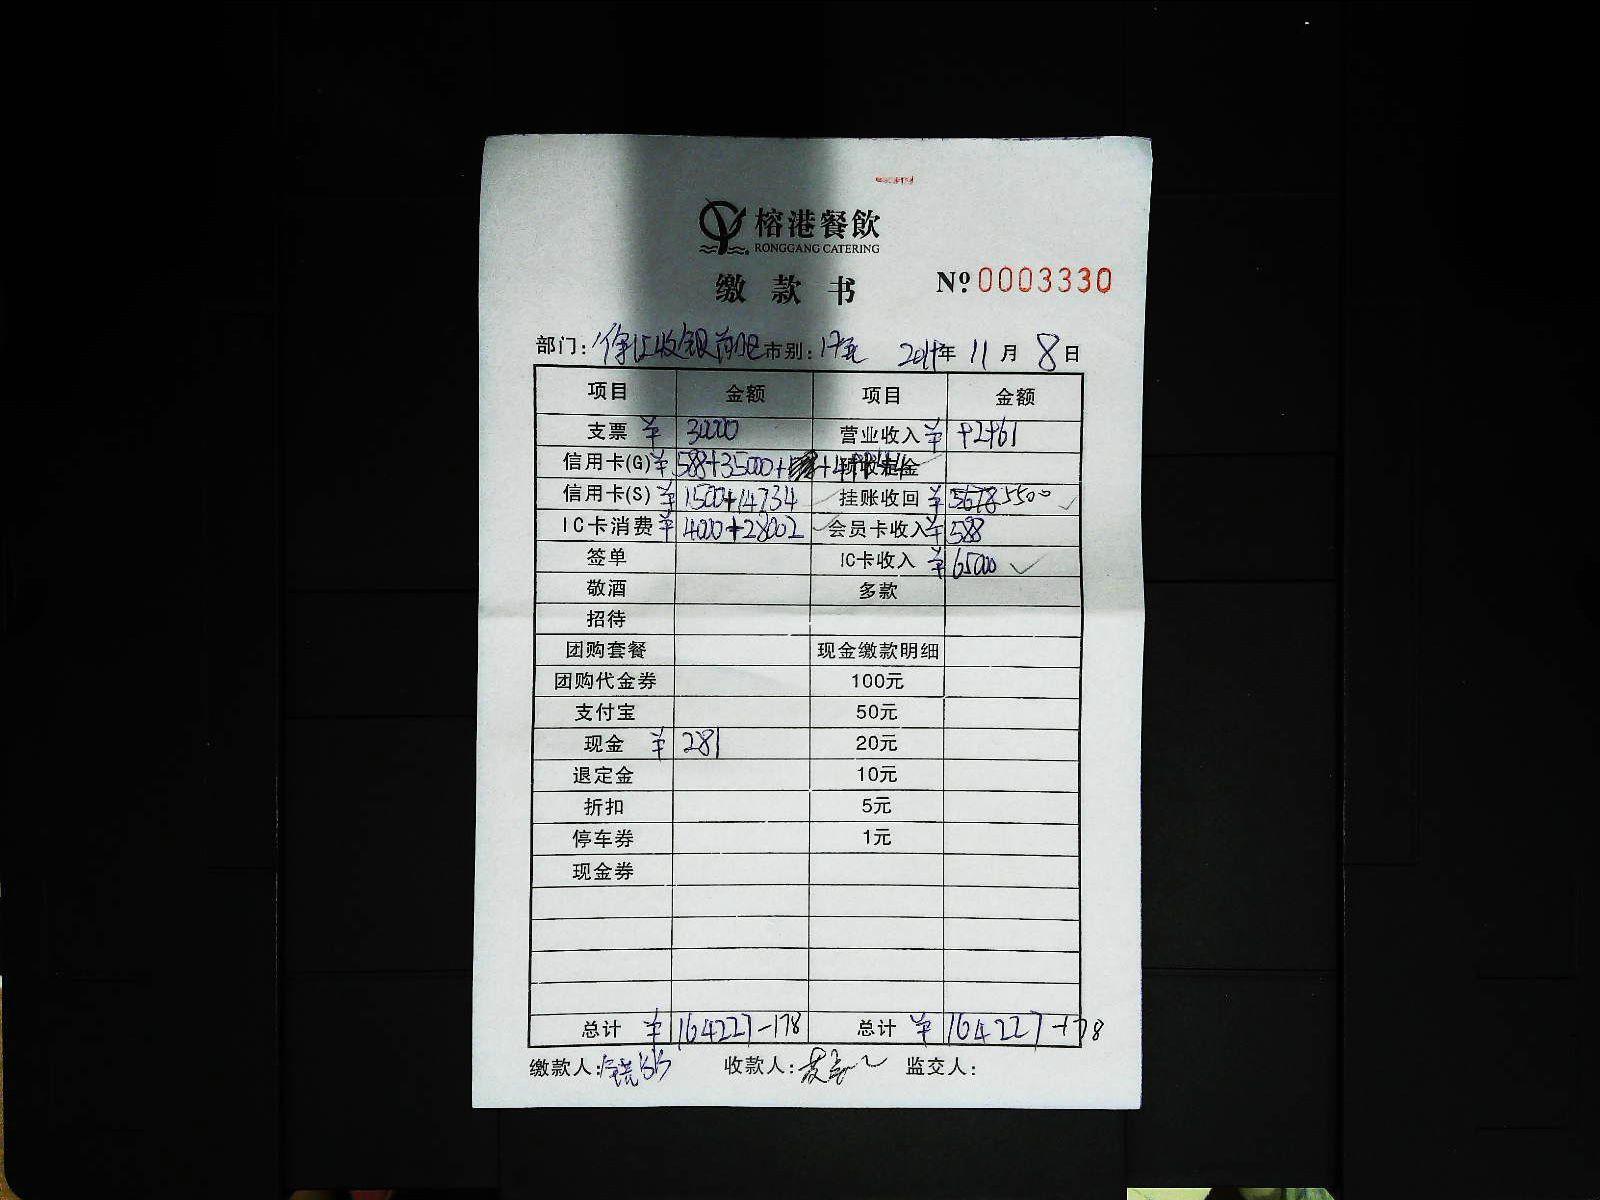 榕港餐飲
RONGGANG CATERING
缴款书 Nº 0003330
部门: 市别: 年 11 月 8 日
项目 金额 项目 金额
支票 ¥ 营业收入 ¥ 92961
信用卡(G) ¥ 588+35000+ 预收定金
信用卡(S) ¥ 1500+14734 挂账收回 ¥ 5678 5500
IC卡消费 ¥ 4000+28002 会员卡收入 ¥ 588
签单 IC卡收入 ¥ 65000
敬酒 多款
招待
团购套餐 现金缴款明细
团购代金券 100元
支付宝 50元
现金 ¥ 281 20元
退定金 10元
折扣 5元
停车券 1元
现金券
总计 ¥ 164227-178 总计 ¥ 164227-178
缴款人: 收款人: 监交人: